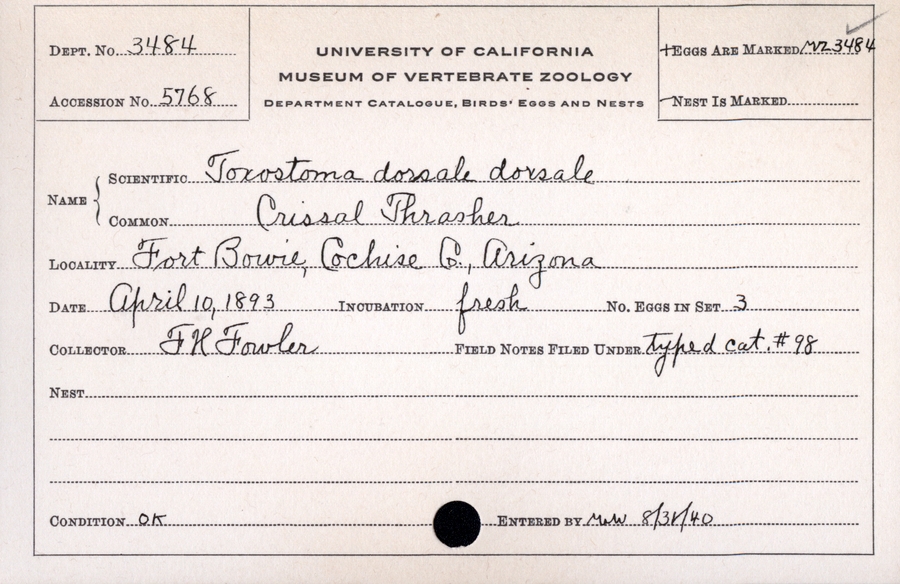 Dept. No. 3484
Accession No. 5768
UNIVERSITY OF CALIFORNIA
MUSEUM OF VERTEBRATE ZOOLOGY
Department Catalogue, Birds' Eggs and Nests
+Eggs Are Marked MVZ3484
Nest Is Marked
Name
Scientific Toxostoma dorsale dorsale
Common Crissal Thrasher
Locality Fort Bowie, Cochise Co., Arizona
Date April 10, 1893 Incubation fresh No. Eggs in Set 3
Collector F H Fowler Field Notes Filed Under typed cat. #98
Nest
Condition OK Entered by 8/31/40